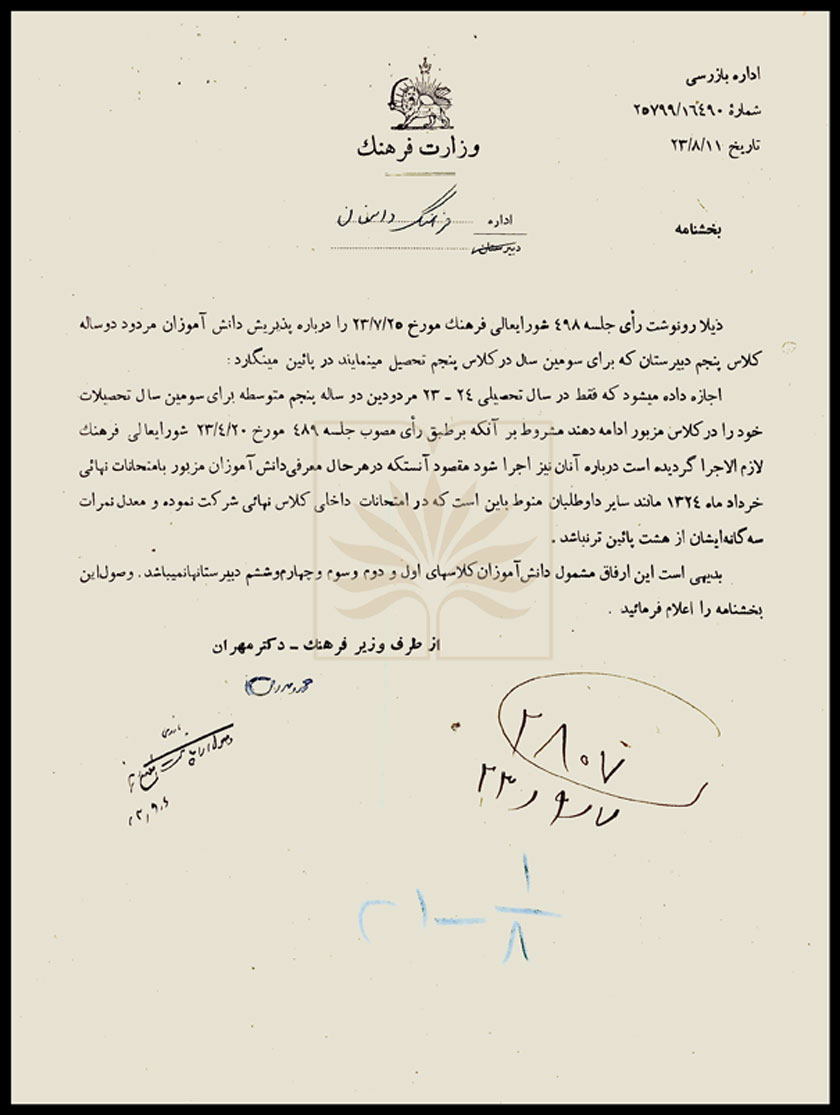 اداره بازرسی
شمارهٔ ۲۵۷۹۹/۱۶۴۹۰
تاریخ ۲۳/۸/۱۱
وزارت فرهنك
بخشنامه
اداره فرهنگ دامغان
دبیرستان
ذیلا رونوشت رأی جلسه ٤۹۸ شورایعالی فرهنك مورخ ۲۳/۷/۲۵ را درباره پذیریش دانش آموزان مردود دوساله
کلاس پنجم دبیرستان که برای سومین سال در کلاس پنجم تحصیل مینمایند در پائین مینگارد :
اجازه داده میشود که فقط در سال تحصیلی ۲٤ - ۲۳ مردودین دو ساله پنجم متوسطه برای سومین سال تحصیلات
خود را در کلاس مزبور ادامه دهند مشروط بر آنکه برطبق رأی مصوب جلسه ٤۸۹ مورخ ۲۳/٤/۲۰ شورایعالی فرهنك
لازم الاجرا گردیده است درباره آنان نیز اجرا شود مقصود آنستکه درهرحال معرفی دانش آموزان مزبور بامتحانات نهائی
خرداد ماه ۱۳۲٤ مانند سایر داوطلبان منوط باین است که در امتحانات داخلی کلاس نهائی شرکت نموده و معدل نمرات
سه گانه ایشان از هشت پائین تر نباشد .
بدیهی است این ارفاق مشمول دانش آموزان کلاسهای اول و دوم وسوم وچهارم وششم دبیرستانها نمیباشد . وصول این
بخشنامه را اعلام فرمائید .
از طرف وزیر فرهنك - دکتر مهران
۲۸۰۷
۲۳٫۹٫۷
۲۱ - ۱/۸